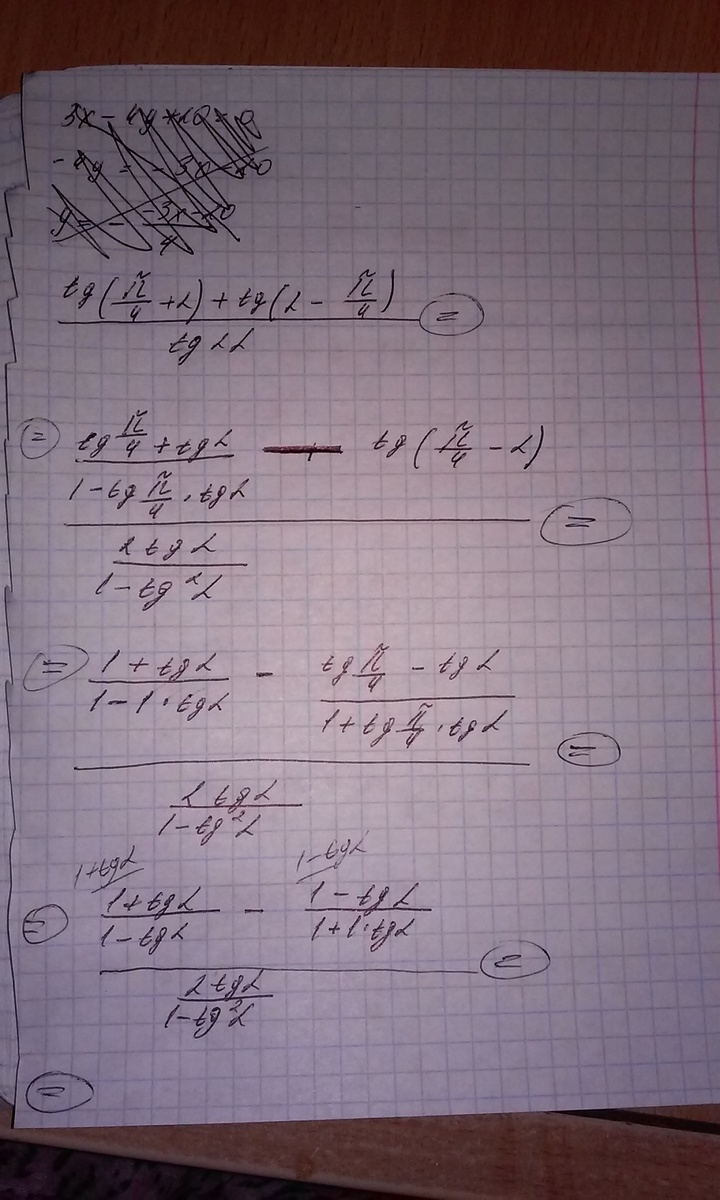 3x - 4y + 20 = 0
-4y = -3x - 20
y = - (-3x-20)/4
(tg(π/4 + α) + tg(α - π/4)) / (tg 2α) =
= ((tg π/4 + tg α) / (1 - tg π/4 · tg α) - tg(π/4 - α)) / ((2 tg α) / (1 - tg²α)) =
= ((1 + tg α) / (1 - 1 · tg α) - (tg π/4 - tg α) / (1 + tg π/4 · tg α)) / ((2 tg α) / (1 - tg²α)) =
1+tgα 1-tgα
= ((1 + tg α) / (1 - tg α) - (1 - tg α) / (1 + 1 · tg α)) / ((2 tg α) / (1 - tg²α)) =
=